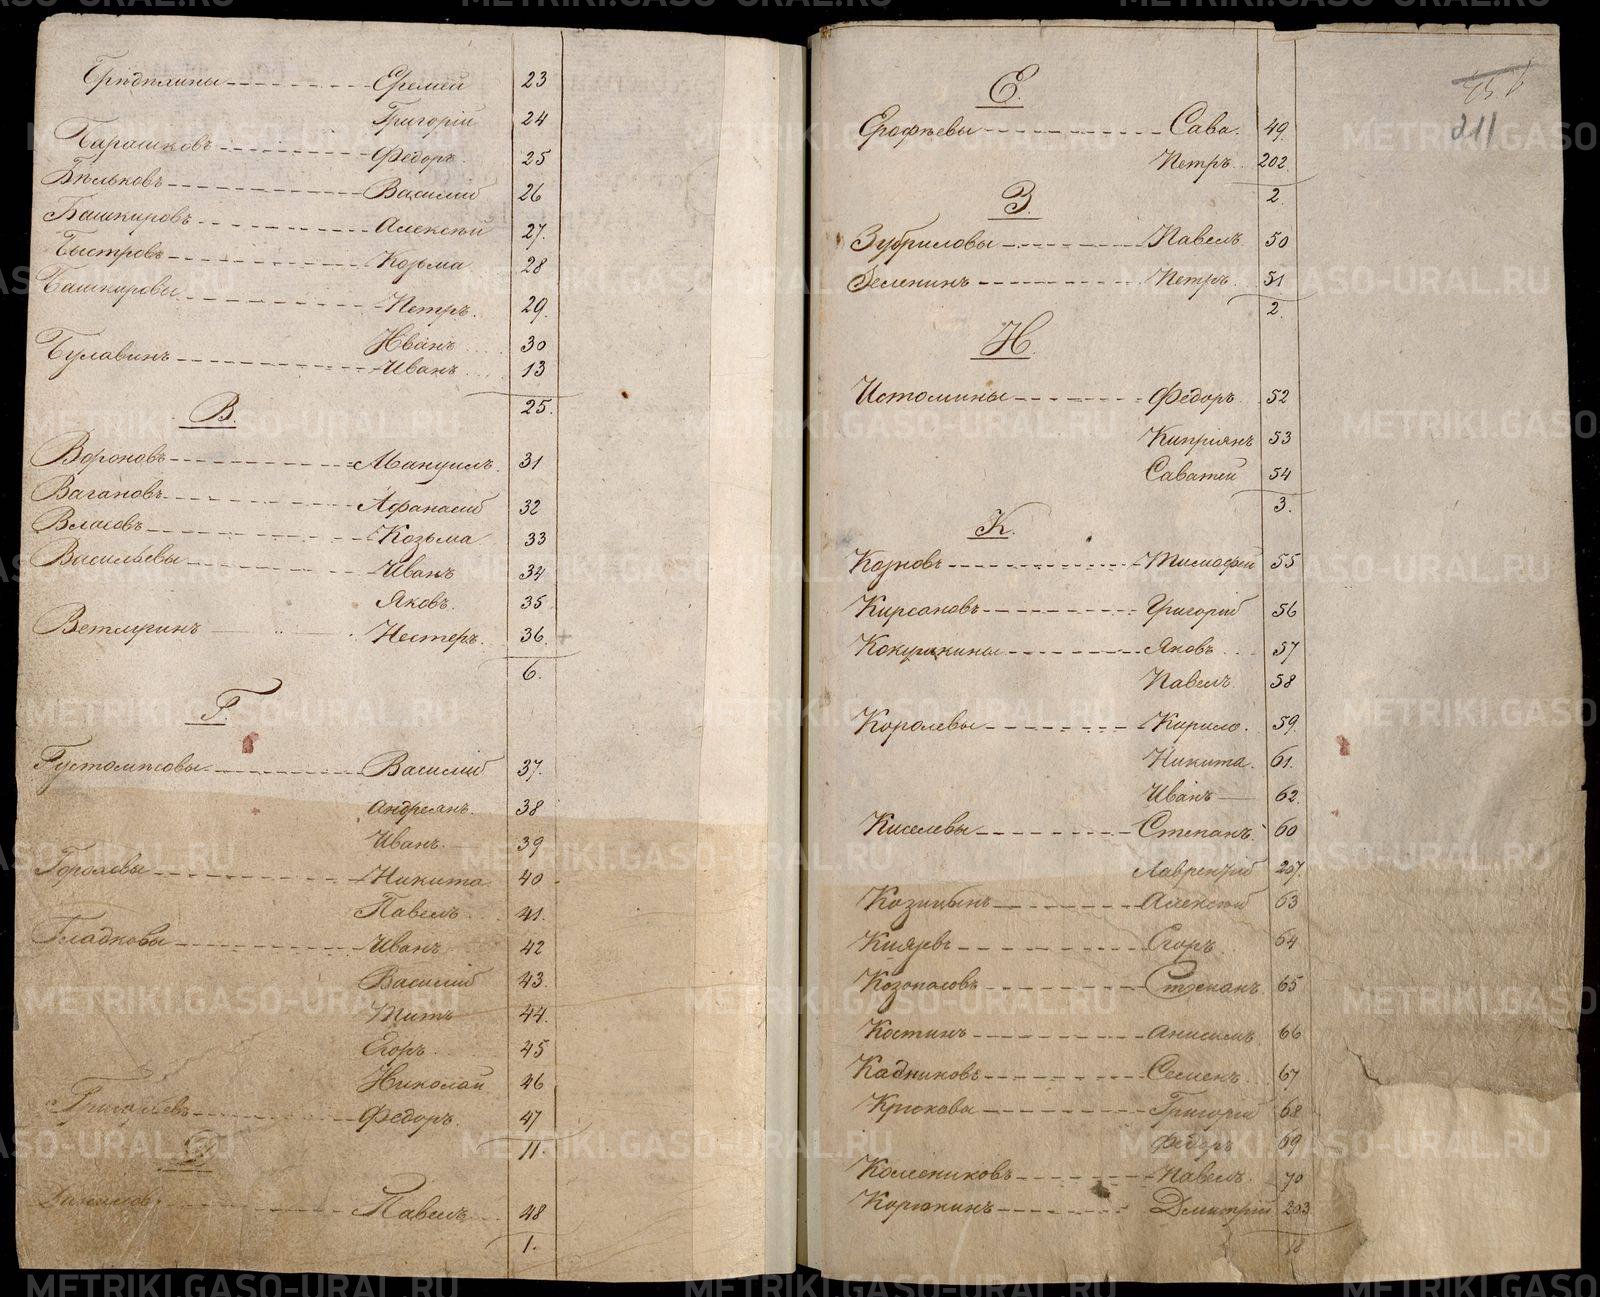 Еремей 23
Григорій 24
Барашковъ Федоръ 25
Бѣльковъ Василій 26
Башкировъ Алексѣй 27.
Быстровъ Козьма 28
Башкировы Петръ. 29.
Иванъ 30
Булавинъ Иванъ 13
25.
В.
Вороновъ Мануилъ 31
Вагановъ Афанасій 32
Власовъ Козьма 33
Васильевы Иванъ 34
Яковъ. 35
Ветлугинъ Нестеръ. 36.
6.
Г.
Густомѣсовы Василій 37.
Андреянъ. 38
Иванъ. 39
Гороховы Никита 40
Павелъ 41.
Гладковы Иванъ 42
Василій 43.
Титъ 44.
Егоръ 45
Николай 46
Григорьевъ Федоръ. 47
11.
Д
Даниловъ Павелъ 48
1.
211
Е.
Ерофѣевы Сава. 49.
Петръ 202.
2.
З.
Зубриловы Павелъ 50
Зеленинъ Петръ. 51
2.
И.
Истомины Федоръ 52
Кипріянъ 53
Саватей 54
3.
К.
Тимофей 55
Кирсановъ Григорій 56
Кокушкины Яковъ 57
Павелъ 58
Королевы Кирило. 59.
Никита. 61.
Иванъ 62.
Киселевы Степанъ 60
Лаврентій 207.
Козицынъ Алексѣй 63
Князевъ Егоръ 64
Козопасовъ Степанъ 65
Костинъ Анисимъ 66
Кадниковъ Семенъ. 67
Крюкова Григорій 68
Федоръ 69
Колесниковъ Павелъ. 70
Корюкинъ Дмитрій 203
18
METRIKI.GASO-URAL.RU